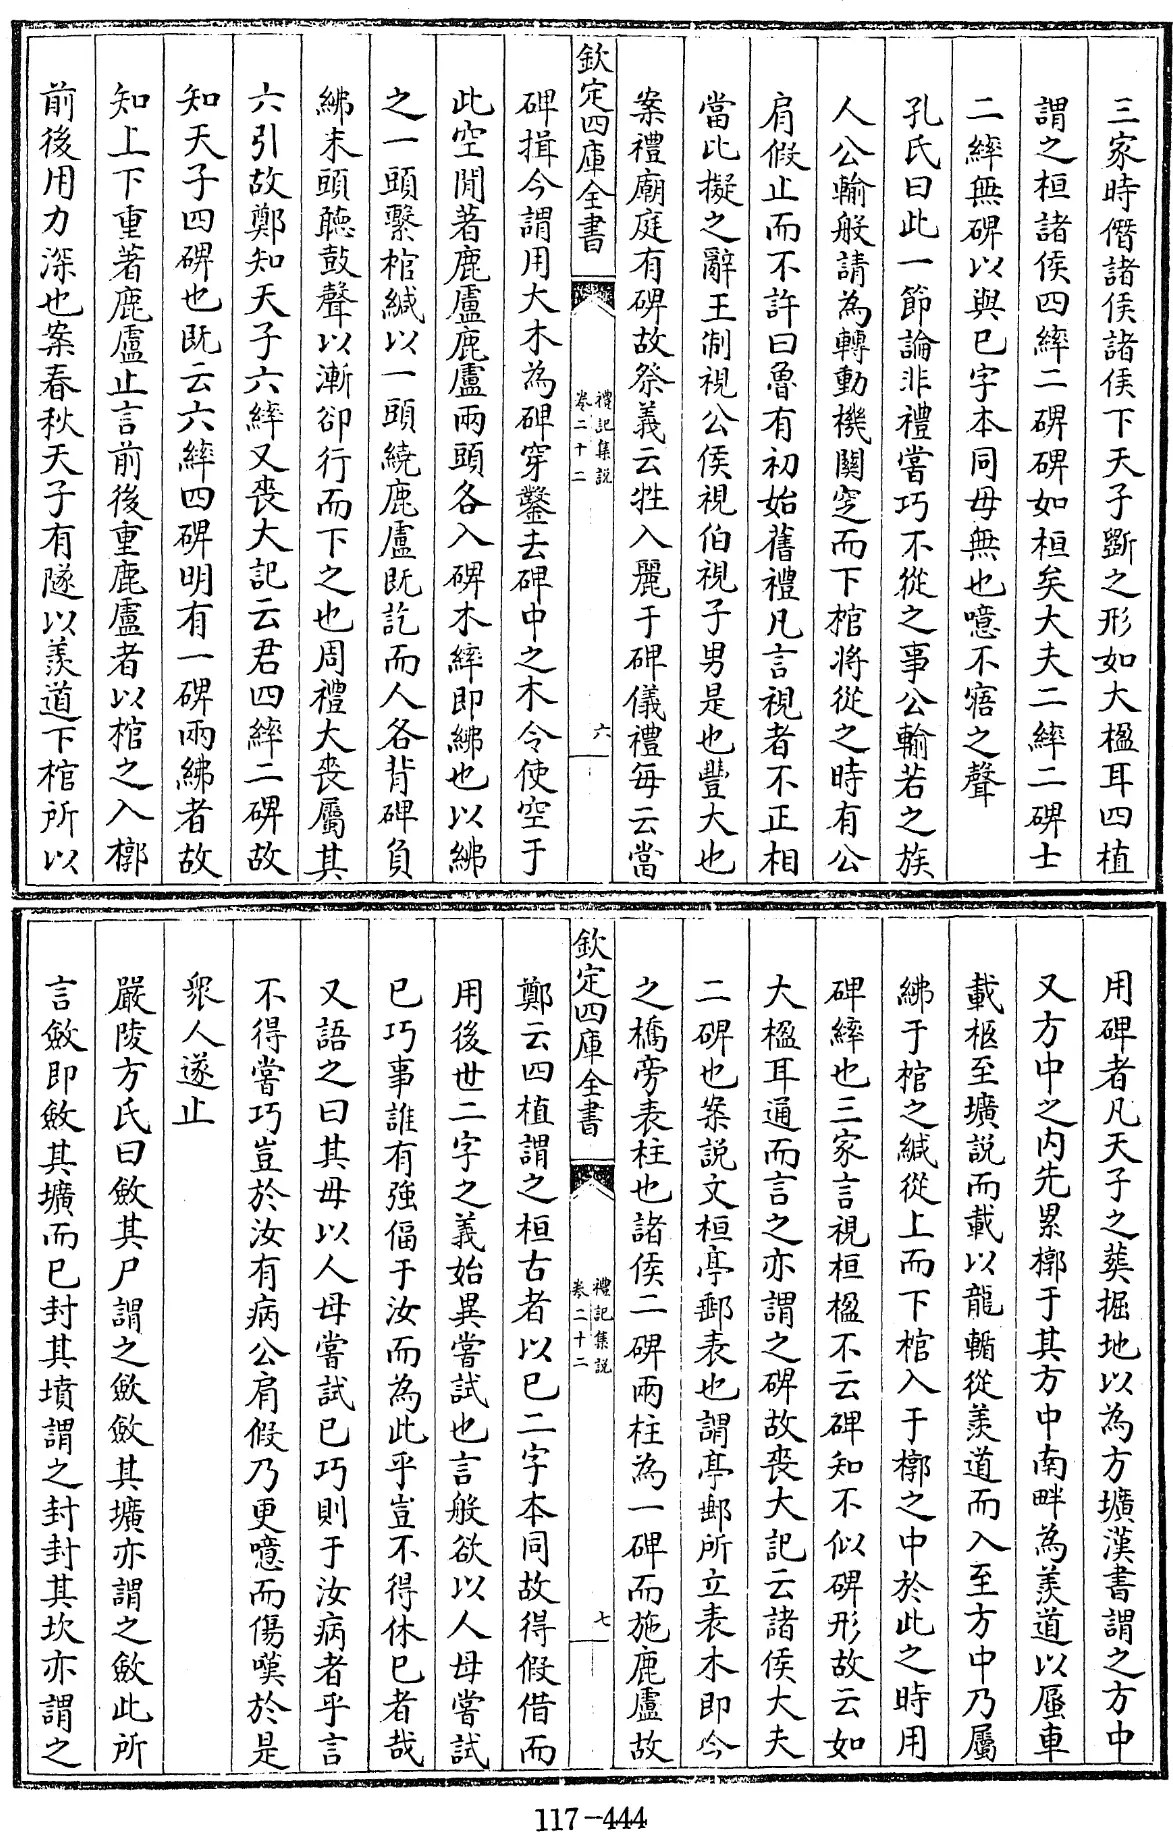 三家時僭諸侯諸侯下天子斲之形如大楹耳四植
謂之桓諸侯四繂二碑碑如桓矣大夫二繂二碑士
二繂無碑以與已字本同毋無也噫不寤之聲
孔氏曰此一節論非禮嘗巧不從之事公輸若之族
人公輸般請為轉動機關窆而下棺將從之時有公
肩假止而不許曰魯有初始舊禮凡言視者不正相
當比擬之辭王制視公侯視伯視子男是也豐大也
案禮廟庭有碑故祭義云牲入麗于碑儀禮每云當
欽定四庫全書
禮記集說
卷二十二
六
碑揖今謂用大木為碑穿鑿去碑中之木令使空于
此空閒著鹿盧鹿盧兩頭各入碑木繂即紼也以紼
之一頭繫棺緘以一頭繞鹿盧既訖而人各背碑負
紼末頭聽鼓聲以漸卻行而下之也周禮大喪屬其
六引故鄭知天子六繂又喪大記云君四繂二碑故
知天子四碑也既云六繂四碑明有一碑兩紼者故
知上下重著鹿盧止言前後重鹿盧者以棺之入槨
前後用力深也案春秋天子有隧以羨道下棺所以
用碑者凡天子之葬掘地以為方壙漢書謂之方中
又方中之内先累槨于其方中南畔為羨道以蜃車
載柩至壙說而載以龍輴從羨道而入至方中乃屬
紼于棺之緘從上而下棺入于槨之中於此之時用
碑繂也三家言視桓楹不云碑知不似碑形故云如
大楹耳通而言之亦謂之碑故喪大記云諸侯大夫
二碑也案說文桓亭郵表也謂亭郵所立表木即今
之橋旁表柱也諸侯二碑兩柱為一碑而施鹿盧故
欽定四庫全書
禮記集說
卷二十二
七
鄭云四植謂之桓古者以已二字本同故得假借而
用後世二字之義始異嘗試也言般欲以人母嘗試
已巧事誰有強偪于汝而為此乎豈不得休已者哉
又語之曰其毋以人母嘗試已巧則于汝病者乎言
不得嘗巧豈於汝有病公肩假乃更噫而傷嘆於是
衆人遂止
嚴陵方氏曰斂其尸謂之斂斂其壙亦謂之斂此所
言斂即斂其壙而已封其墳謂之封封其坎亦謂之
117-444